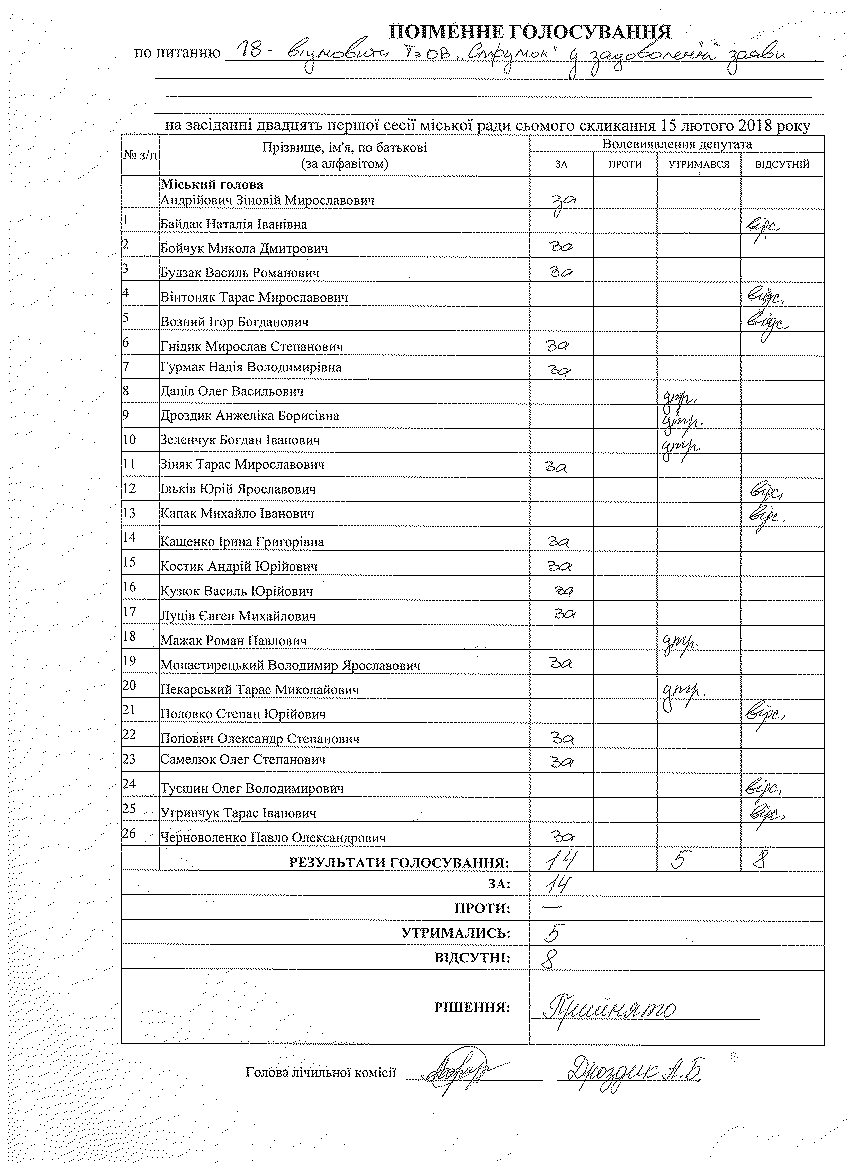 ПОІМЕННЕ ГОЛОСУВАННЯ
по питанню 18 - відмовити ТзОВ „Струмок" у задоволенні заяви
на засіданні двадцять першої сесії міської ради сьомого скликання 15 лютого 2018 року
№ з/п Прізвище, ім'я, по батькові (за алфавітом) Волевиявлення депутата
ЗА ПРОТИ УТРИМАВСЯ ВІДСУТНІЙ
Міський голова
Андрійович Зіновій Мирославович за
1 Байдак Наталія Іванівна відс.
2 Бойчук Микола Дмитрович за
3 Будзак Василь Романович за
4 Вінтоняк Тарас Мирославович відс.
5 Возний Ігор Богданович відс
6 Гнідик Мирослав Степанович за
7 Гурмак Надія Володимирівна за
8 Даців Олег Васильович утр.
9 Дроздик Анжеліка Борисівна утр.
10 Зеленчук Богдан Іванович утр.
11 Зіняк Тарас Мирославович за
12 Ільків Юрій Ярославович відс.
13 Капак Михайло Іванович відс.
14 Кащенко Ірина Григорівна за
15 Костик Андрій Юрійович за
16 Кузюк Василь Юрійович за
17 Луців Євген Михайлович за
18 Мажак Роман Павлович утр.
19 Монастирецький Володимир Ярославович за
20 Пекарський Тарас Миколайович утр.
21 Половко Степан Юрійович відс.
22 Попович Олександр Степанович за
23 Самелюк Олег Степанович за
24 Тусшин Олег Володимирович відс.
25 Угринчук Тарас Іванович відс.
26 Черноволенко Павло Олександрович за
РЕЗУЛЬТАТИ ГОЛОСУВАННЯ: 14 5 8
ЗА: 14
ПРОТИ: —
УТРИМАЛИСЬ: 5
ВІДСУТНІ: 8
РІШЕННЯ: Прийнято
Голова лічильної комісії Дроздик А.Б.